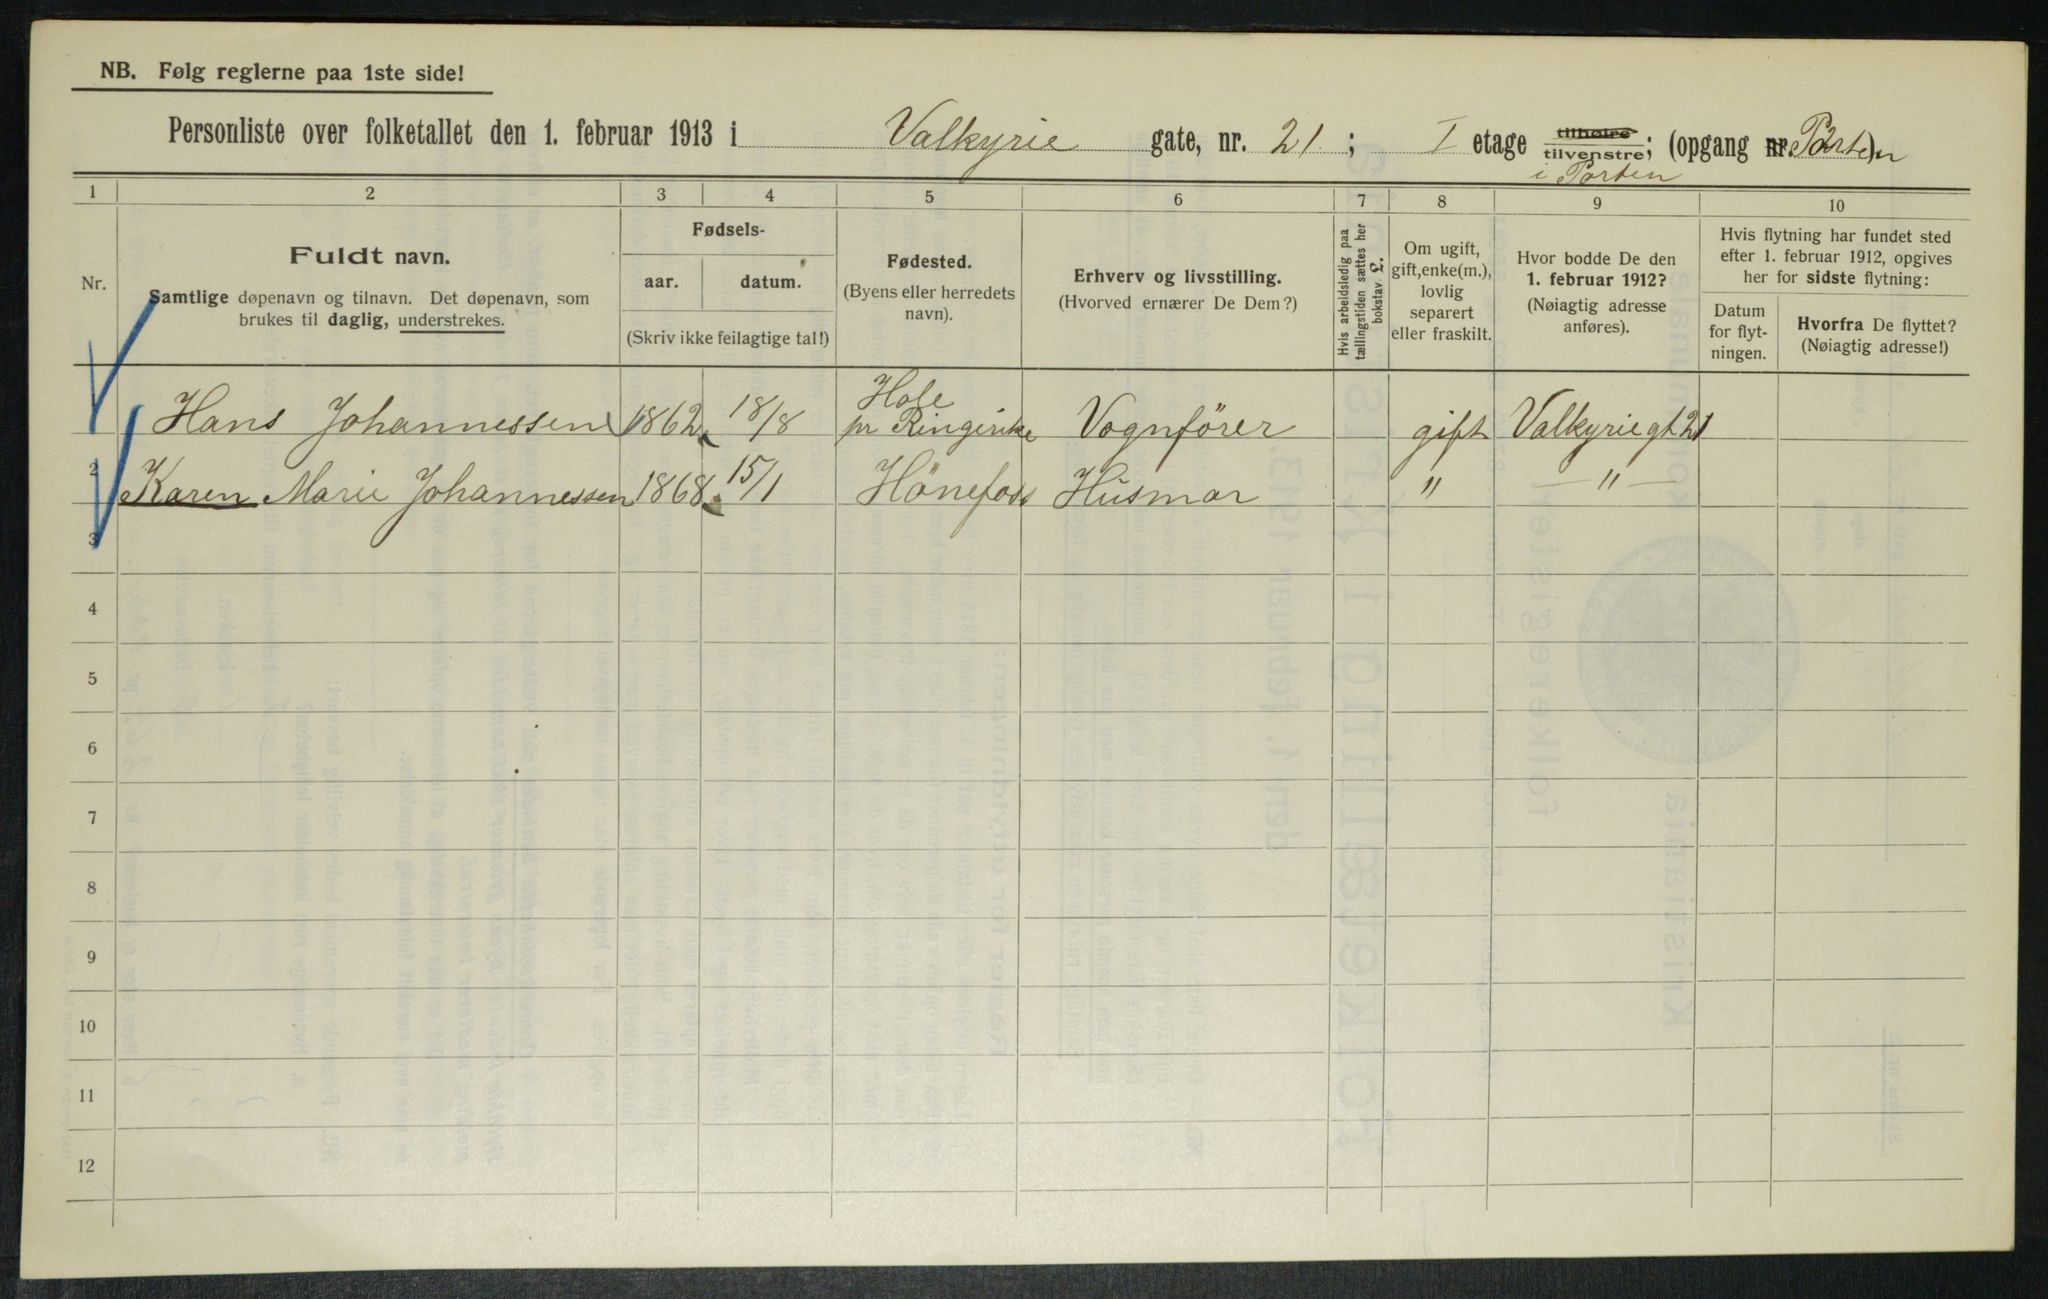 NB. Følg reglerne paa 1ste side!
Personliste over folketallet den 1. februar 1913 i Valkyrie gate, nr. 21; I etage tilhøire tilvenstre; (opgang nr. Porten)
i Porten
1 2 3 4 5 6 7 8 9 10
Nr.
Fuldt navn.
Samtlige døpenavn og tilnavn. Det døpenavn, som
brukes til daglig, understrekes.
Fødsels-
aar. datum.
(Skriv ikke feilagtige tal!)
Fødested.
(Byens eller herredets
navn).
Erhverv og livsstilling.
(Hvorved ernærer De Dem?)
Hvis arbeidsledig paa
tællingstiden sættes her
bokstav L.
Om ugift,
gift, enke(m.),
lovlig
separert
eller fraskilt.
Hvor bodde De den
1. februar 1912?
(Nøiagtig adresse
anføres).
Hvis flytning har fundet sted
efter 1. februar 1912, opgives
her for sidste flytning:
Datum
for flyt-
ningen.
Hvorfra De flyttet?
(Nøiagtig adresse!)
Hole
Hans Johannessen 1862 18/8 pr Ringerike Vognfører gift Valkyriegt 21
2 Karen Marie Johannessen 1868 15/1 Hönefoss Husmor " — " —
3
4
5
6
7
8
9
10
11
12